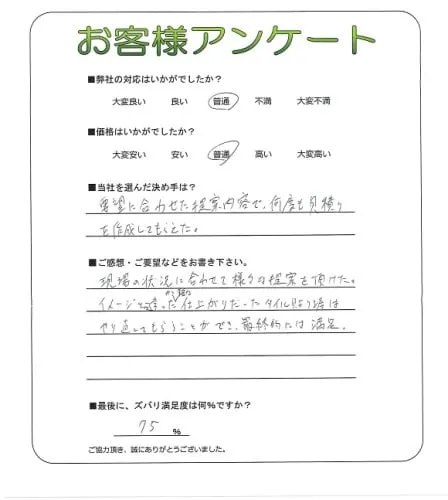 お客様アンケート
■弊社の対応はいかがでしたか？
大変良い 良い 普通 不満 大変不満
■価格はいかがでしたか？
大変安い 安い 普通 高い 大変高い
■当社を選んだ決め手は？
要望に合わせた提案内容で、何度も見積り
を作成してもらえた。
■ご感想・ご要望などをお書き下さい。
現場の状況に合わせて様々な提案を頂けた。
イメージと違った仕上がりだったタイル貼り場は
やり直してもらうことができ、最終的には満足。
■最後に、ズバリ満足度は何％ですか？
75 ％
ご協力頂き、誠にありがとうございました。